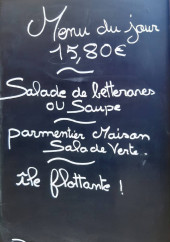 Menu du jour
15,80€
Salade de betteraves
ou Soupe
parmentier Maison
Salade Verte.
île flottante !